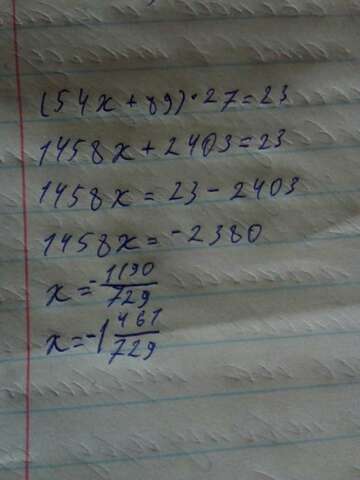 (54x+89)·27=23
1458x+2403=23
1458x=23-2403
1458x=-2380
x=-1190/729
x=-1 461/729